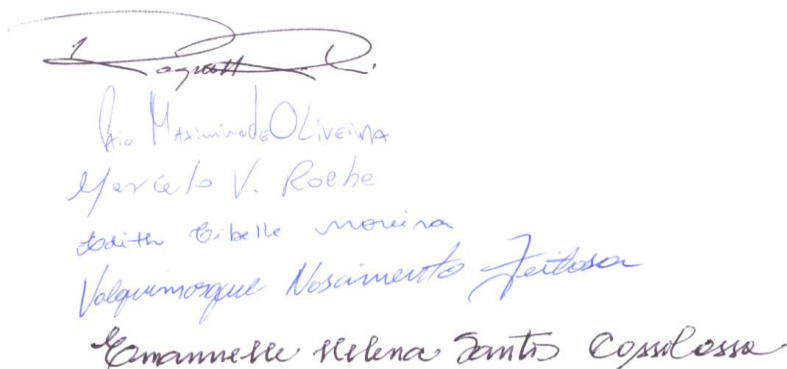 Caio Maximino de Oliveira
Marcelo V. Roehe
Edith Cibelle Moreira
Valquimarque Nascimento Feitosa
Helena Santos